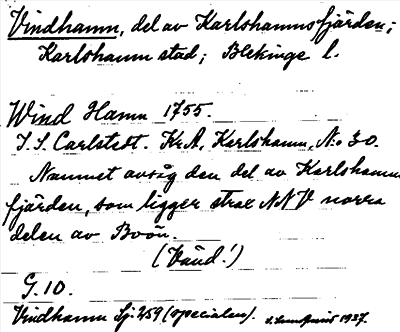 Vindhamn, del av Karlshamnsfjärden;
Karlshamn stad; Blekinge l.
Wind Hamn 1755.
J. S. Carlstedt. Kr.A., Karlshamn, No 30.
Namnet avsåg den del av Karlshamns
fjärden, som ligger strax NNV norra
delen av Boön.
(Vänd!)
G. 10.
Vindhamn Sj: 259 (specialen). S. Lundquist 1937.